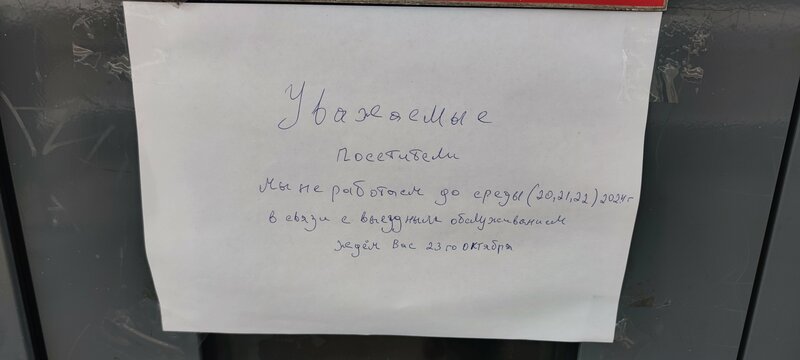 Уважаемые
посетители
Мы не работаем до среды (20,21,22) 2024г
в связи с выездным обслуживанием
ждём Вас 23го октября